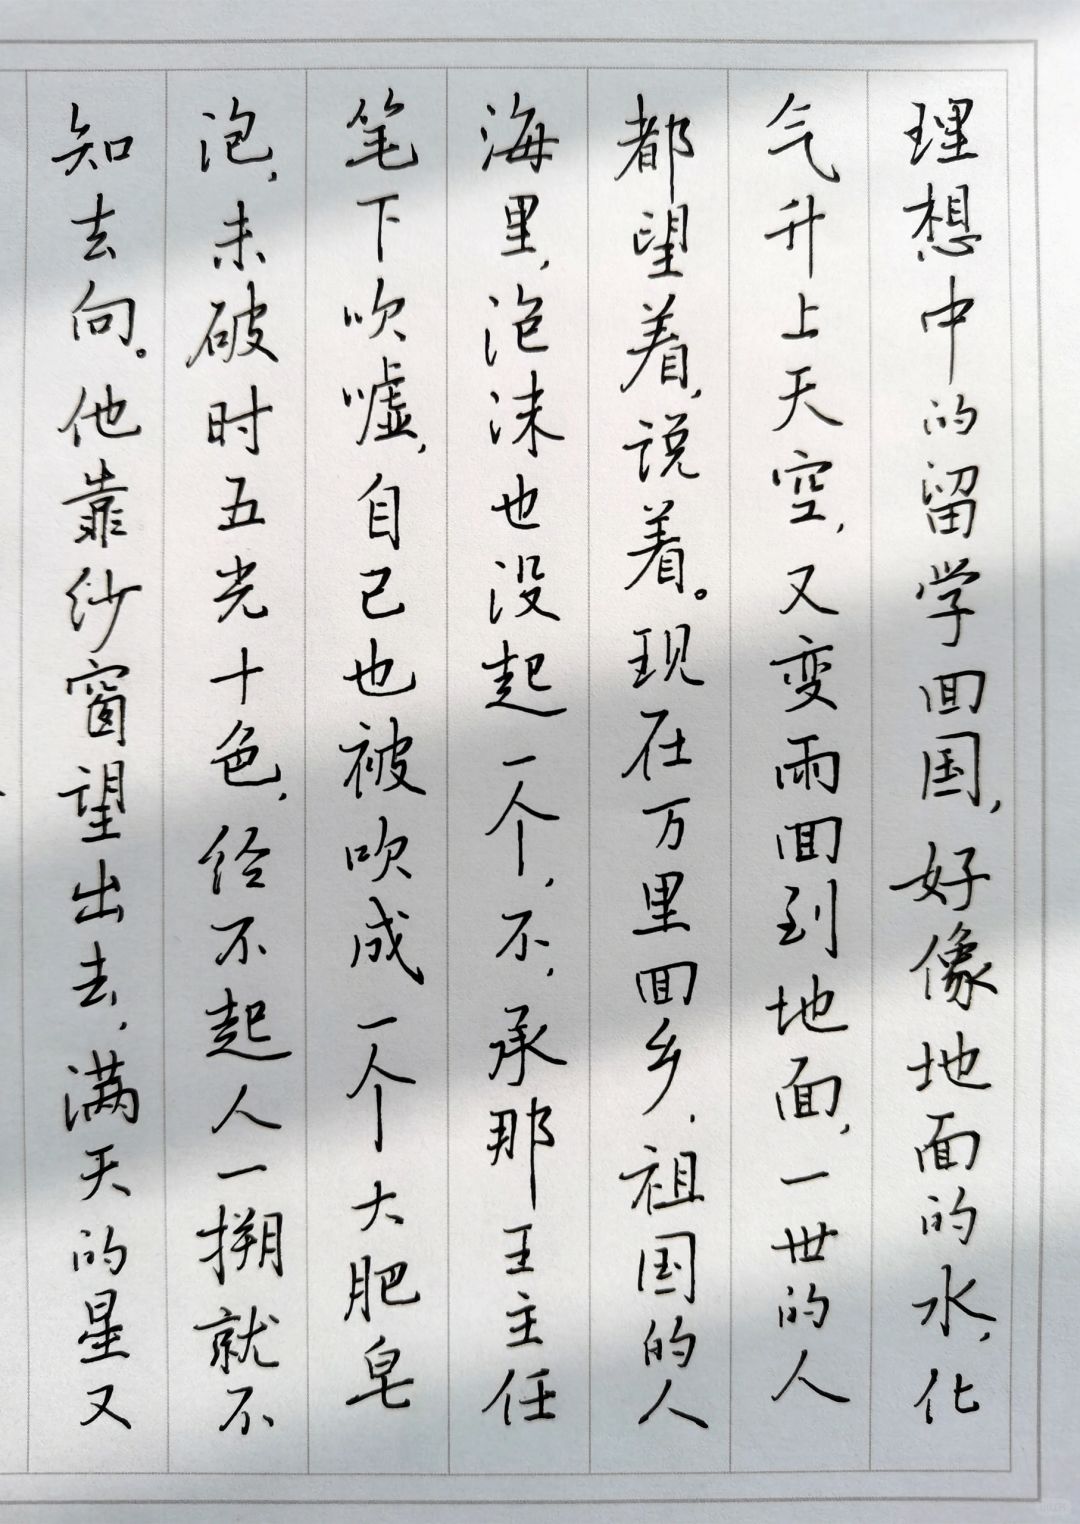 理想中的留学回国，好像地面的水，化
气升上天空，又变雨回到地面，一世的人
都望着，说着。现在万里回乡，祖国的人
海里，泡沫也没起一个，不，承那王主任
笔下吹嘘，自己也被吹成一个大肥皂
泡，未破时五光十色，经不起人一搠就不
知去向。他靠纱窗望出去，满天的星又